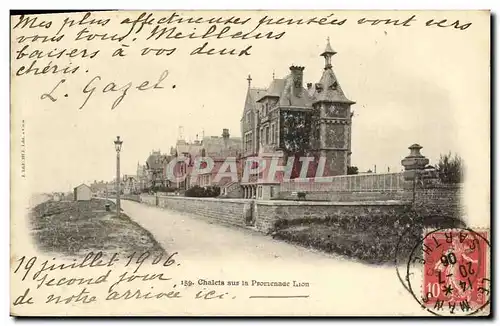 Mes plus affectueuses pensées vont vers
vous tous. Meilleurs
baisers à vos deux
chéris.
L. Gazel
CPARAMA
19 juillet 1906
Second jour
de notre arrivée ici.
159. Chalets sur la Promenade Lion
06
14 -7
10